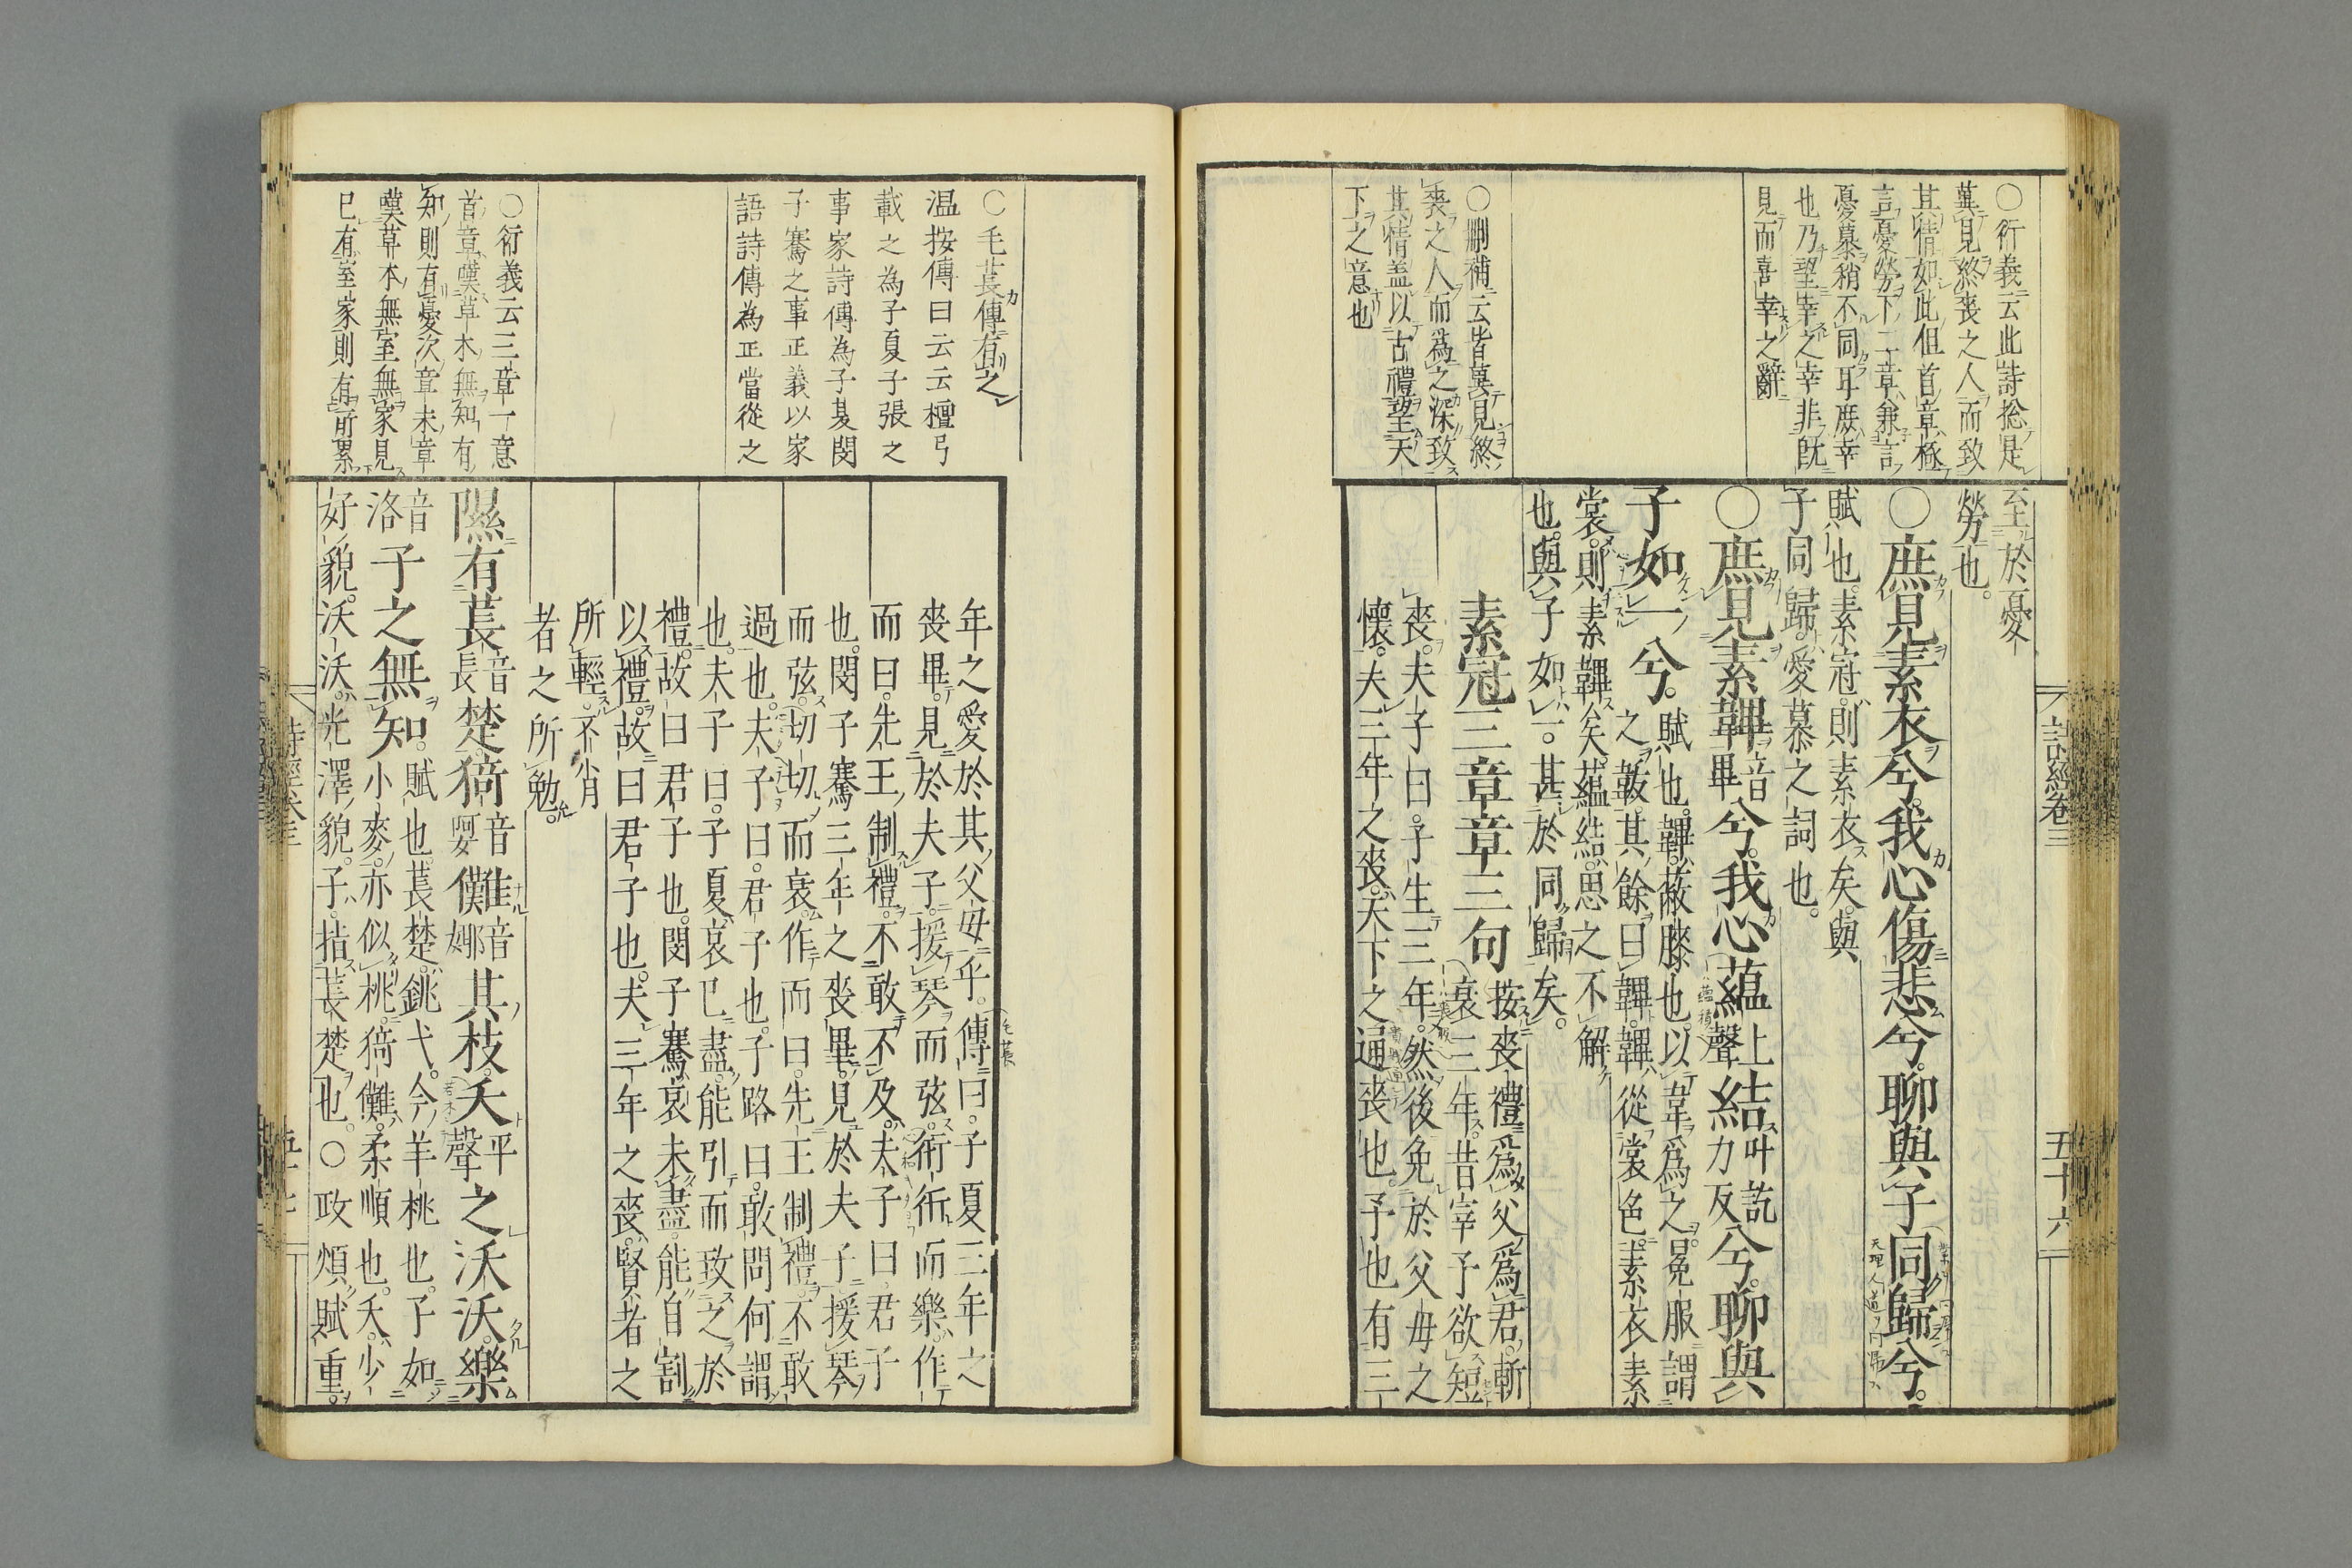 ○衍義云此詩捴是
冀見終喪之人而致
其情如此但首章極
言憂勞下二章兼言
憂慕稍不同耳庶幸
也乃望幸之幸非既
見而喜幸之辭
○刪補云皆冀見終
喪之人而爲之深致
其情盖以古禮望天
下之意也
至於憂
勞也。
○庶見素衣兮。我心傷悲兮。聊與子同歸兮。
賦也。素冠。則素衣矣。與
子同歸。愛慕之詞也。
○庶見素韠音畢兮。我心蘊上聲結叶訖力反兮。聊與
子如一兮。賦也。韠。蔽膝也。以韋爲之。冕服謂
之韍。其餘曰韠。韠從裳色。素衣素
裳。則素韠矣。蘊結。思之不解
也。與子如一。甚於同歸矣。
素冠三章章三句
按喪禮。爲父爲君。斬
衰三年。昔宰予欲短
喪。夫子曰。子生三年。然後免於父母之
懷。夫三年之喪。天下之通喪也。予也有三
詩經卷三
五十六
○毛萇傳有之
温按傳曰云云檀弓
載之為子夏子張之
事家詩傳為子夏閔
子騫之事正義以家
語詩傳為正當從之
○衍義云三章一意
首章嘆草木無知有
知則有憂次章末章
嘆草木無室無家見
已有室家則有所累
年之愛於其父母乎。傳曰。子夏三年之
喪畢。見於夫子。援琴而弦。衎衎而樂。作
而曰。先王制禮。不敢不及。夫子曰。君子
也。閔子騫三年之喪畢。見於夫子。援琴
而弦。切切而哀。作而曰。先王制禮。不敢
過也。夫子曰。君子也。子路曰。敢問何謂
也。夫子曰。子夏哀已盡。能引而致之於
禮。故曰君子也。閔子騫哀未盡。能自割
以禮。故曰君子也。夫三年之喪。賢者之
所輕。不肖
者之所勉。
隰有萇音長楚。猗音婀儺音娜其枝。夭平聲之沃沃。樂
音洛子之無知。賦也。萇楚。銚弋。今羊桃也。子如
小麥。亦似桃。猗儺。柔順也。夭。少
好貌。沃沃。光澤貌。子。指萇楚也。○政煩賦重。